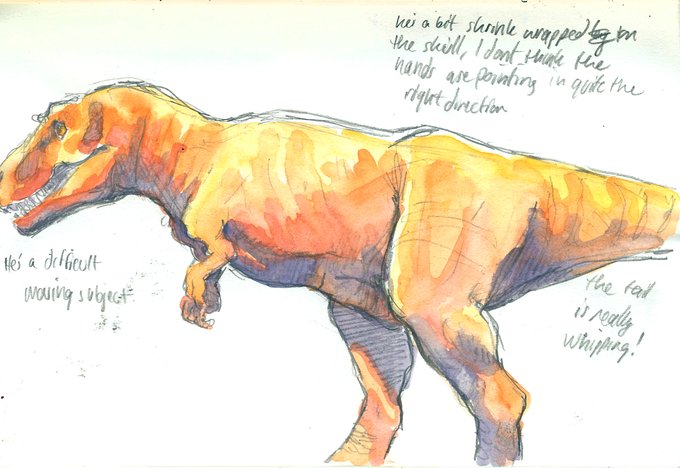 he's a bit shrink wrapped on
the skull, I dont think the
hands are pointing in quite the
right direction
He's a difficult
moving subject
the tail
is really
whipping!